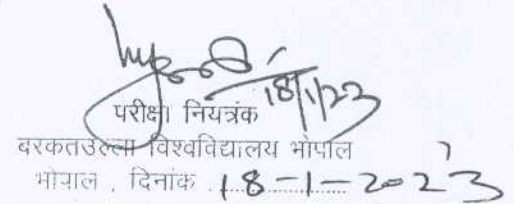 18/1/23
परीक्षा नियत्रंक
बरकतउल्ला विश्वविद्यालय भोपाल
भोपाल , दिनांक .18-1-2023